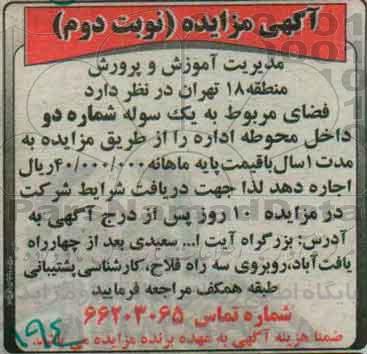 آگهی مزایده (نوبت دوم)
مدیریت آموزش و پرورش
منطقه ۱۸ تهران در نظر دارد
فضای مربوط به یک سوله شماره دو
داخل محوطه اداره را از طریق مزایده به
مدت ۱ سال باقیمت پایه ماهانه ۴۰/۰۰۰/۰۰۰ ریال
اجاره دهد لذا جهت دریافت شرایط شرکت
در مزایده ۱۰ روز پس از درج آگهی به
آدرس: بزرگراه آیت ا... سعیدی بعد از چهارراه
یافت آباد، روبروی سه راه فلاح، کارشناسی پشتیبانی
طبقه همکف مراجعه فرمایید
شماره تماس ۶۶۲۰۳۰۶۵
ضمنا هزینه آگهی به عهده برنده مزایده می باشد.